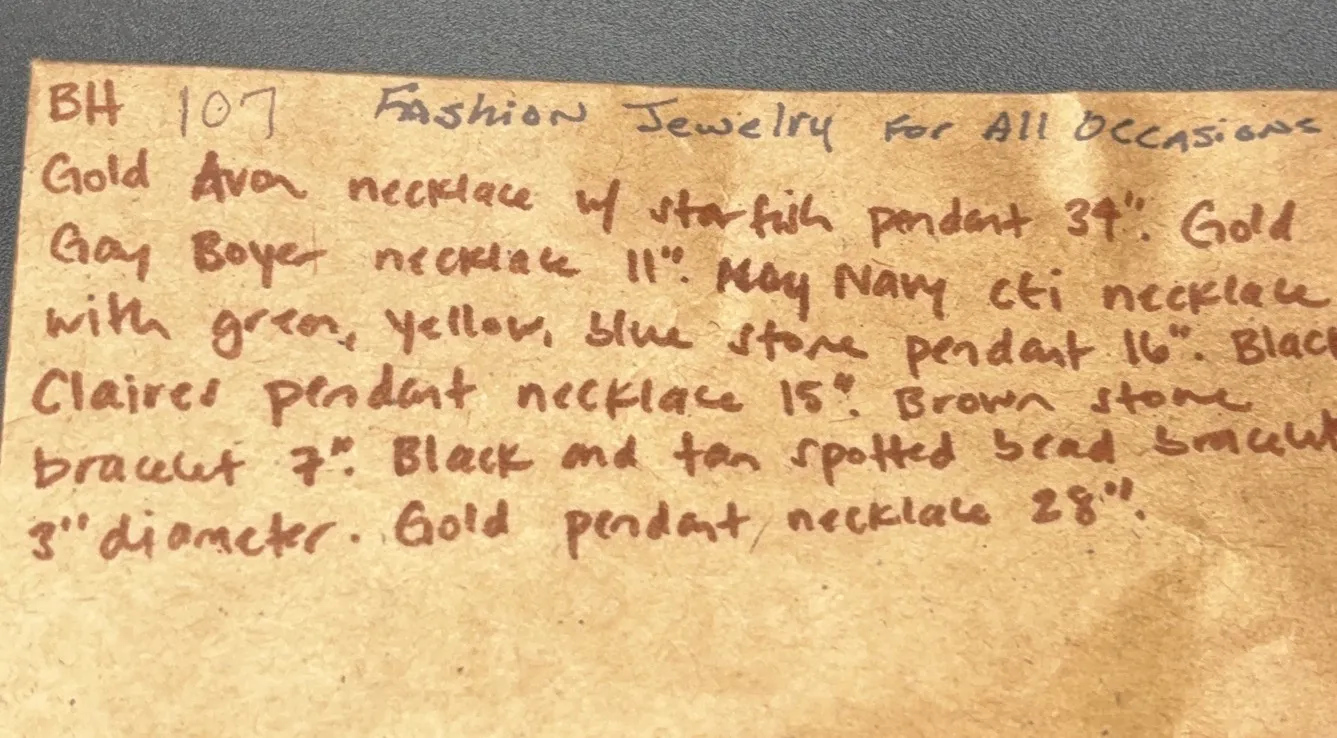 BH 107 Fashion Jewelry For All Occasions
Gold Avon necklace w/ starfish pendant 34". Gold
Gay Boyer necklace 11". Navy cti necklace
with green, yellow, blue stone pendant 16". Black
Claires pendant necklace 15". Brown stone
bracelet 7". Black and tan spotted bead bracelet
3" diameter. Gold pendant necklace 28".